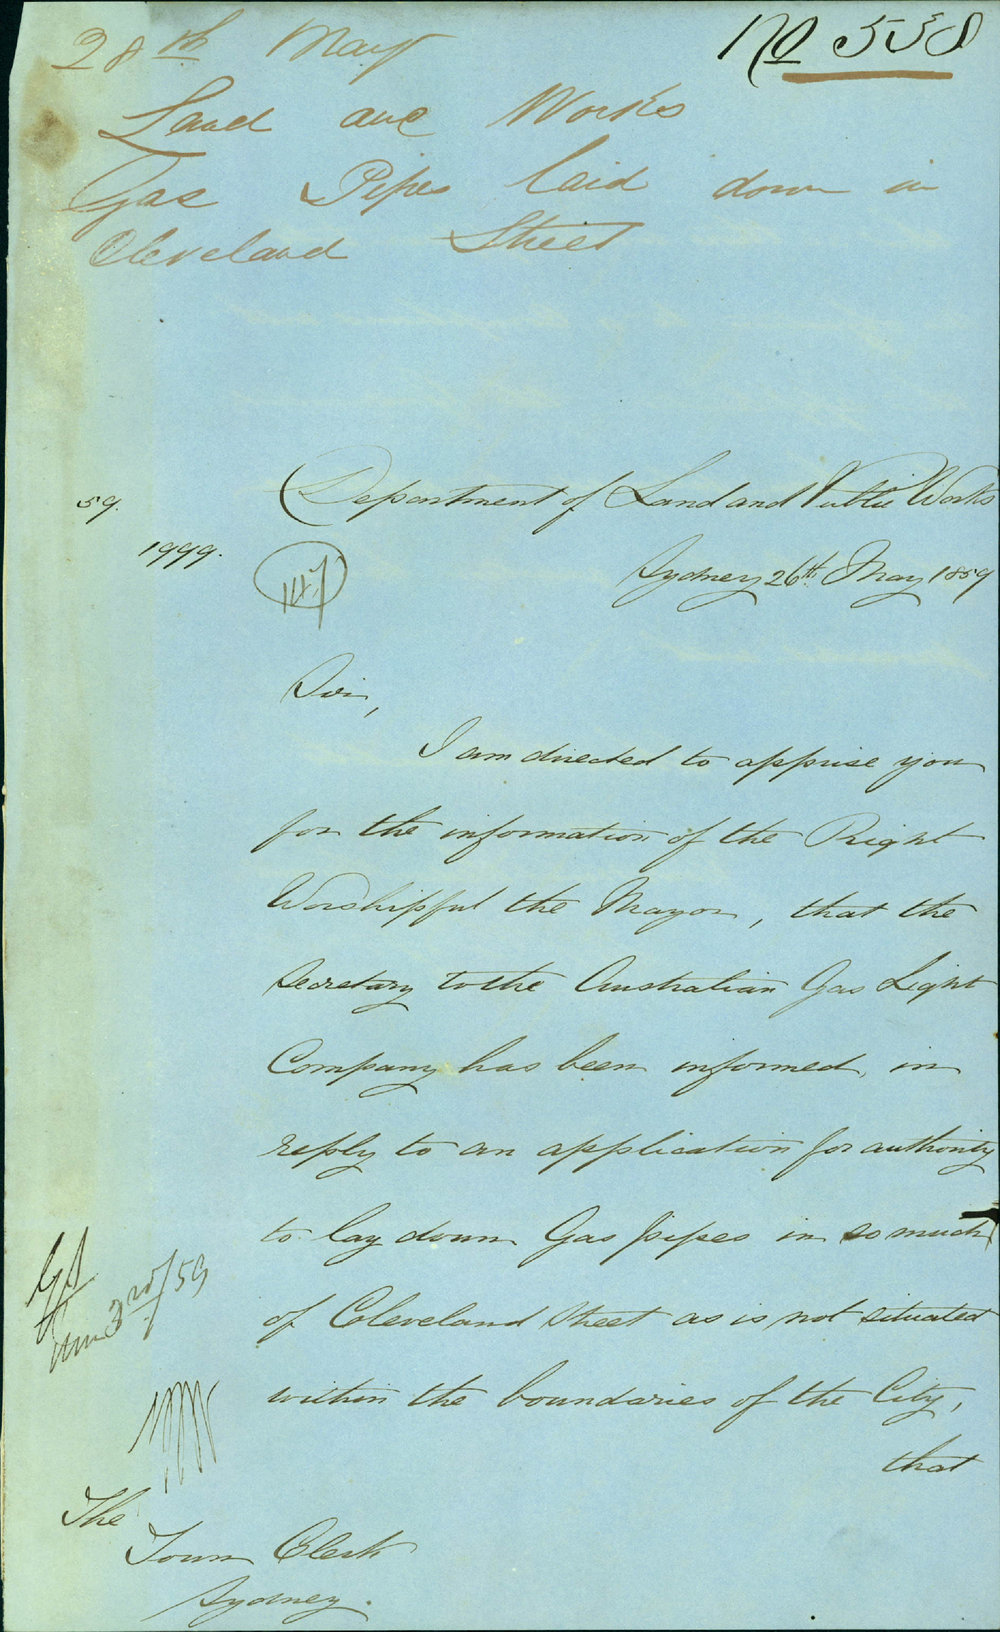 No 558
28th May
Land and Works
Gas Pipes laid down in
Cleveland Street
59.
1999.
Department of Land and Public Works
147
Sydney 26th May 1859
Sir,
I am directed to apprise you
for the information of the Right
Worshipful the Mayor, that the
Secretary to the Australian Gas Light
Company has been informed, in
reply to an application for authority
to lay down Gas pipes in so much
of Cleveland Street as is not situated
within the boundaries of the City,
that
3rd/59
The
Town Clerk
Sydney.